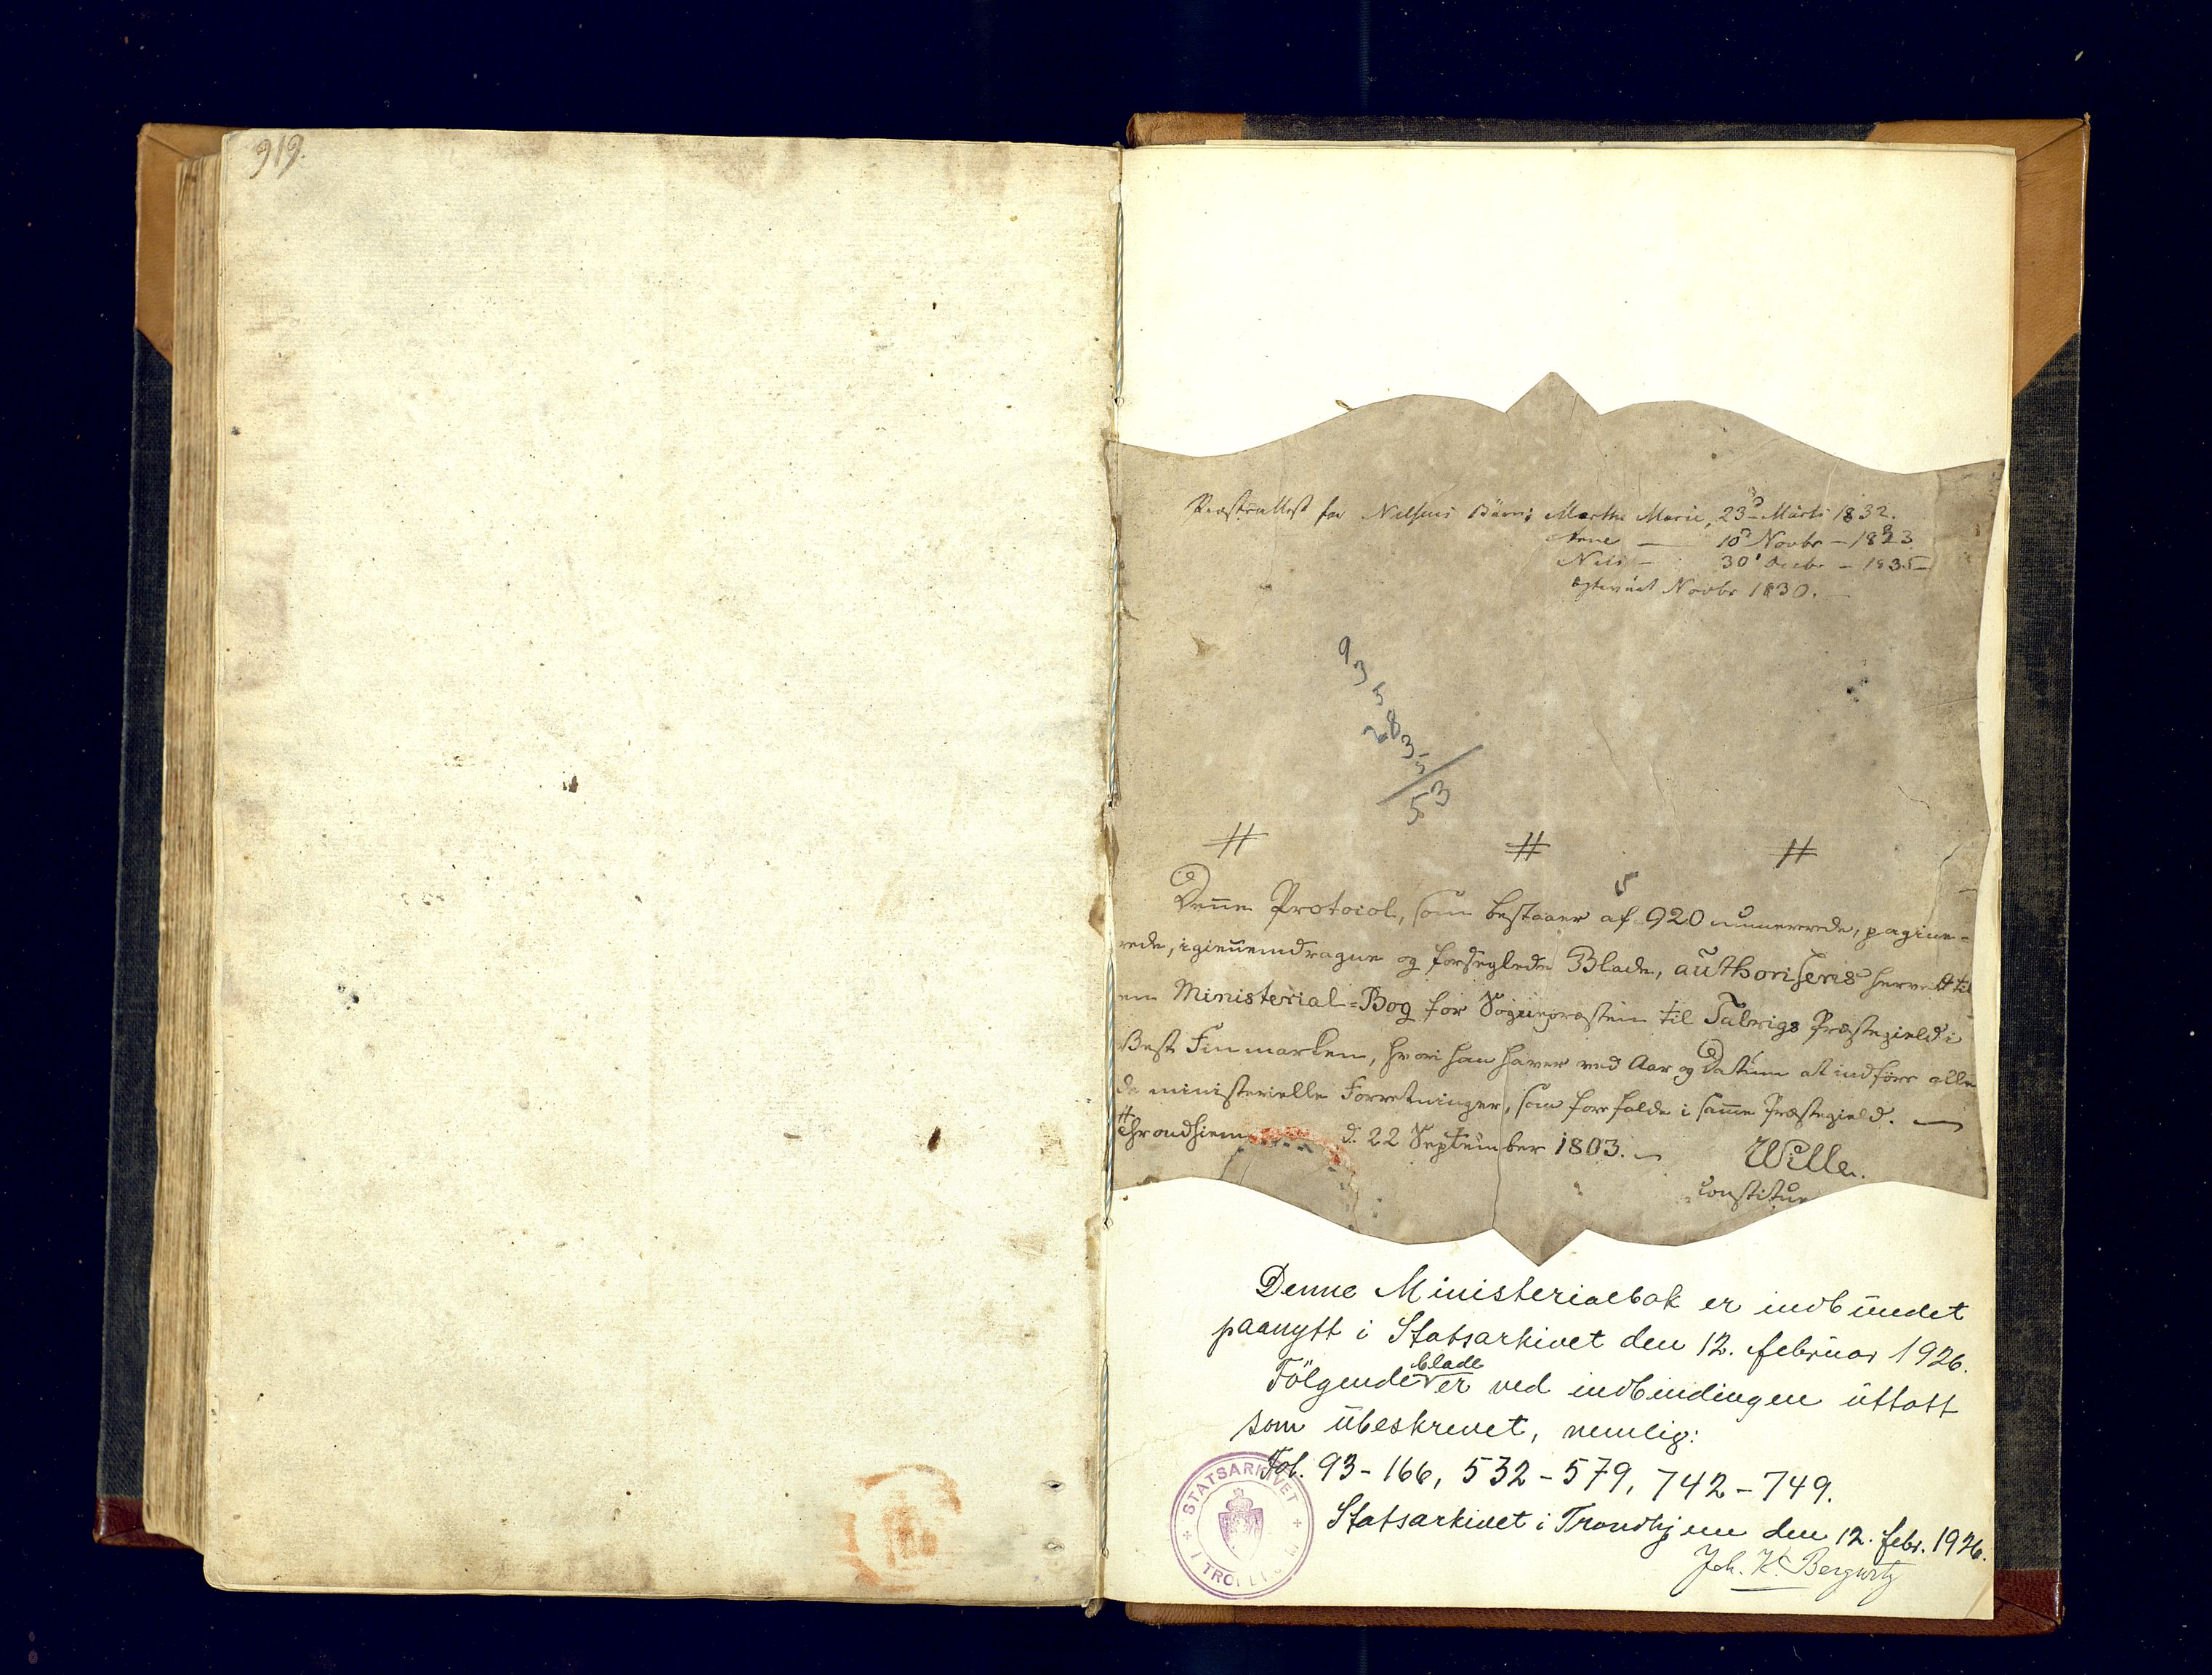 919.
Præsteattest for Nielsens Börn: Marthe Marie, 23d Marts 1832.
Ane — 10d Novbr — 1833
Nils — 30' Decbr — 1835 —
Egteviet Novbr 1830. —
9
3
5
28
3
5
53
# # #
Denne Protocol, som bestaaer af 920 numererede, pagine-
rede, igiennemdragne og forseglede Blade, authoriseres herved til
en Ministerial-Bog for Sognepræsten til Talvigs Præstegield i
Vest Finmarken, hvori han haver ved Aar og Datum at indføre alle
de ministerielle Forretninger, som forefalde i samme Præstegield. —
Throndhiem d. 22 September 1803. —
Wille.
constitue
Denne Ministerialbok er indbundet
paanytt i Statsarkivet den 12. februar 1926.
blade
Følgende er ved indbindingen uttatt
som ubeskrevet, nemlig:
Fol. 93-166, 532-579, 742-749.
Statsarkivet i Trondhjem den 12. febr. 1926.
Joh. K. Bergwitz
STATSARKIVET I